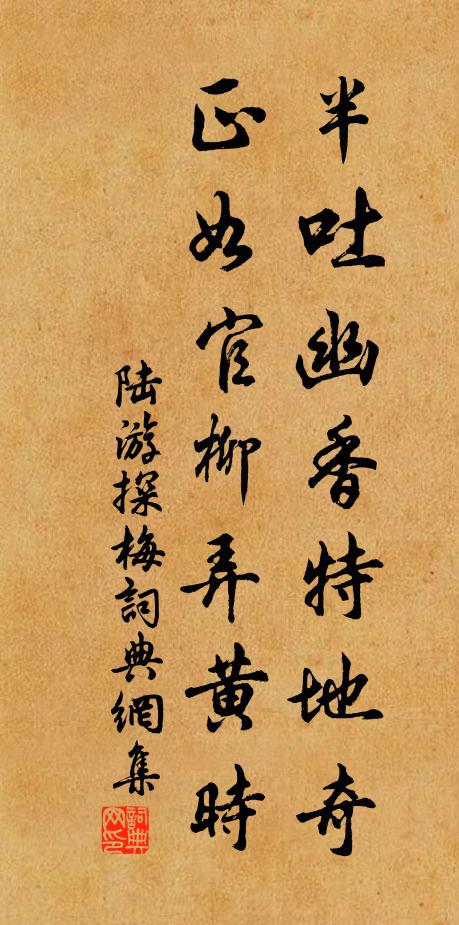 半吐幽香特地奇
正如官柳弄黄時
陆游探梅詞典網集
詞典网印